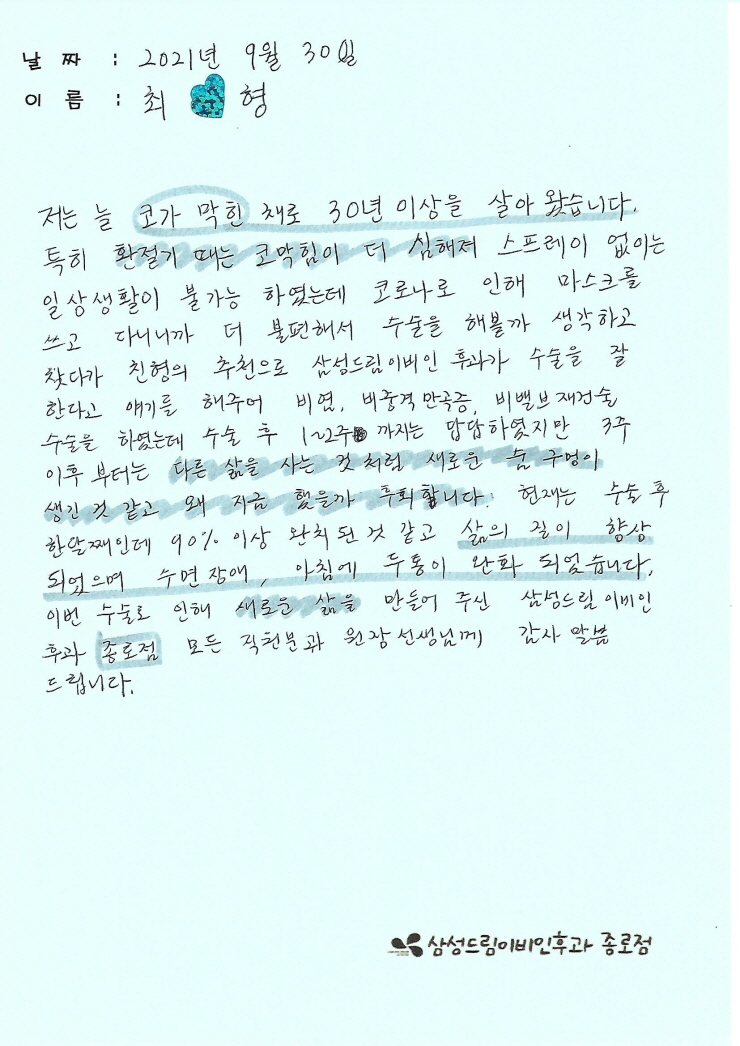 날 짜 : 2021년 9월 30일
이 름 : 최 형
저는 늘 코가 막힌 채로 30년 이상을 살아 왔습니다.
특히 환절기 때는 코막힘이 더 심해져 스프레이 없이는
일상생활이 불가능 하였는데 코로나로 인해 마스크를
쓰고 다니니까 더 불편해서 수술을 해볼까 생각하고
찾다가 친형의 추천으로 삼성드림이비인 후과가 수술을 잘
한다고 얘기를 해주어 비염, 비중격만곡증, 비밸브재건술
수술을 하였는데 수술 후 1~2주 까지는 답답하였지만 3주
이후 부터는 다른 삶을 사는 것 처럼 새로운 숨 구멍이
생긴 것 같고 왜 지금 했을까 후회합니다. 현재는 수술 후
한달째인데 90% 이상 완치 된 것 같고 삶의 질이 향상
되었으며 수면장애, 아침에 두통이 완화 되었습니다.
이번 수술로 인해 새로운 삶을 만들어 주신 삼성드림이비인
후과 종로점 모든 직원분과 원장선생님께 감사 말씀
드립니다.
삼성드림이비인후과 종로점